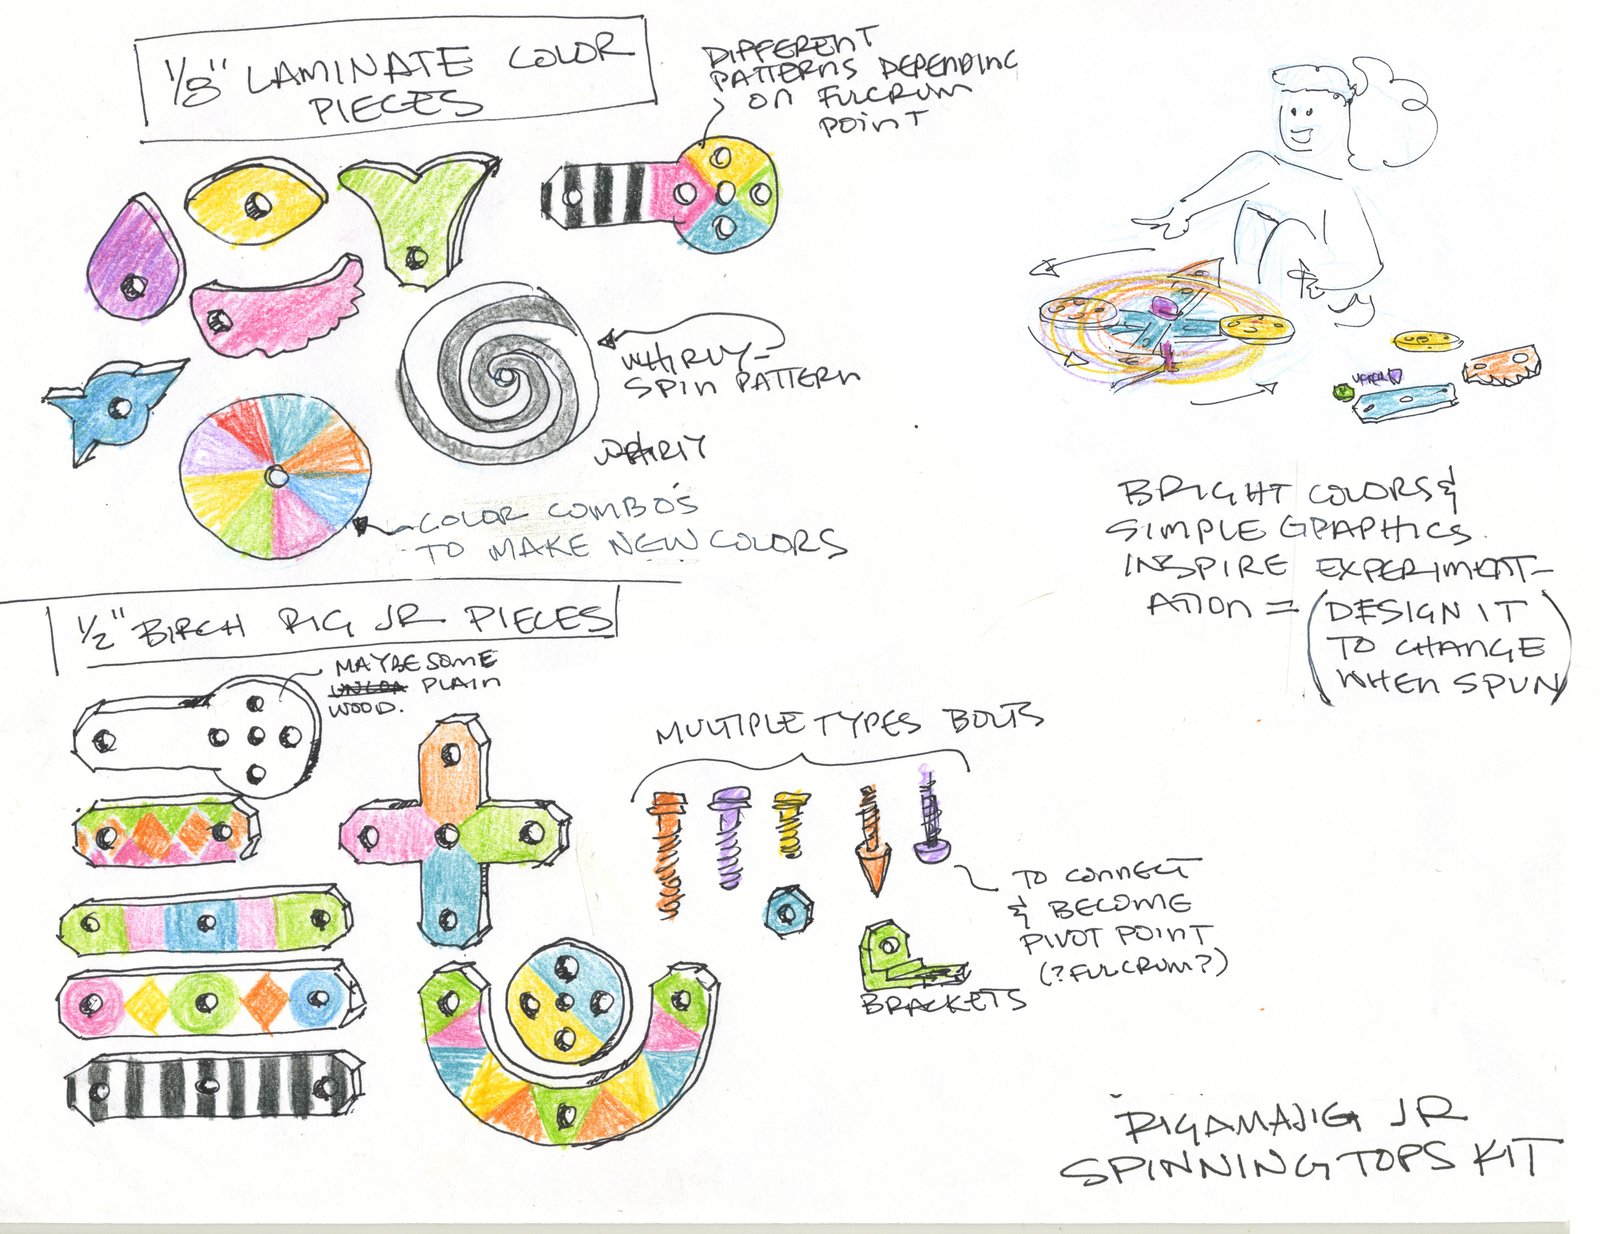 1/8" LAMINATE COLOR
PIECES
DIFFERENT
PATTERNS DEPENDING
ON FULCRUM
POINT
WHIRLY-
SPIN PATTERN
WHIRLY
COLOR COMBO'S
TO MAKE NEW COLORS
BRIGHT COLORS &
SIMPLE GRAPHICS.
INSPIRE EXPERIMENT-
ATION = (DESIGN IT
TO CHANGE
WHEN SPUN)
1/2" BIRCH RIG JR PIECES
MAYBE SOME
PLAIN
WOOD.
MULTIPLE TYPES BOLTS
TO CONNECT
& BECOME
PIVOT POINT
(?FULCRUM?)
BRACKETS
RIGAMAJIG JR
SPINNING TOPS KIT